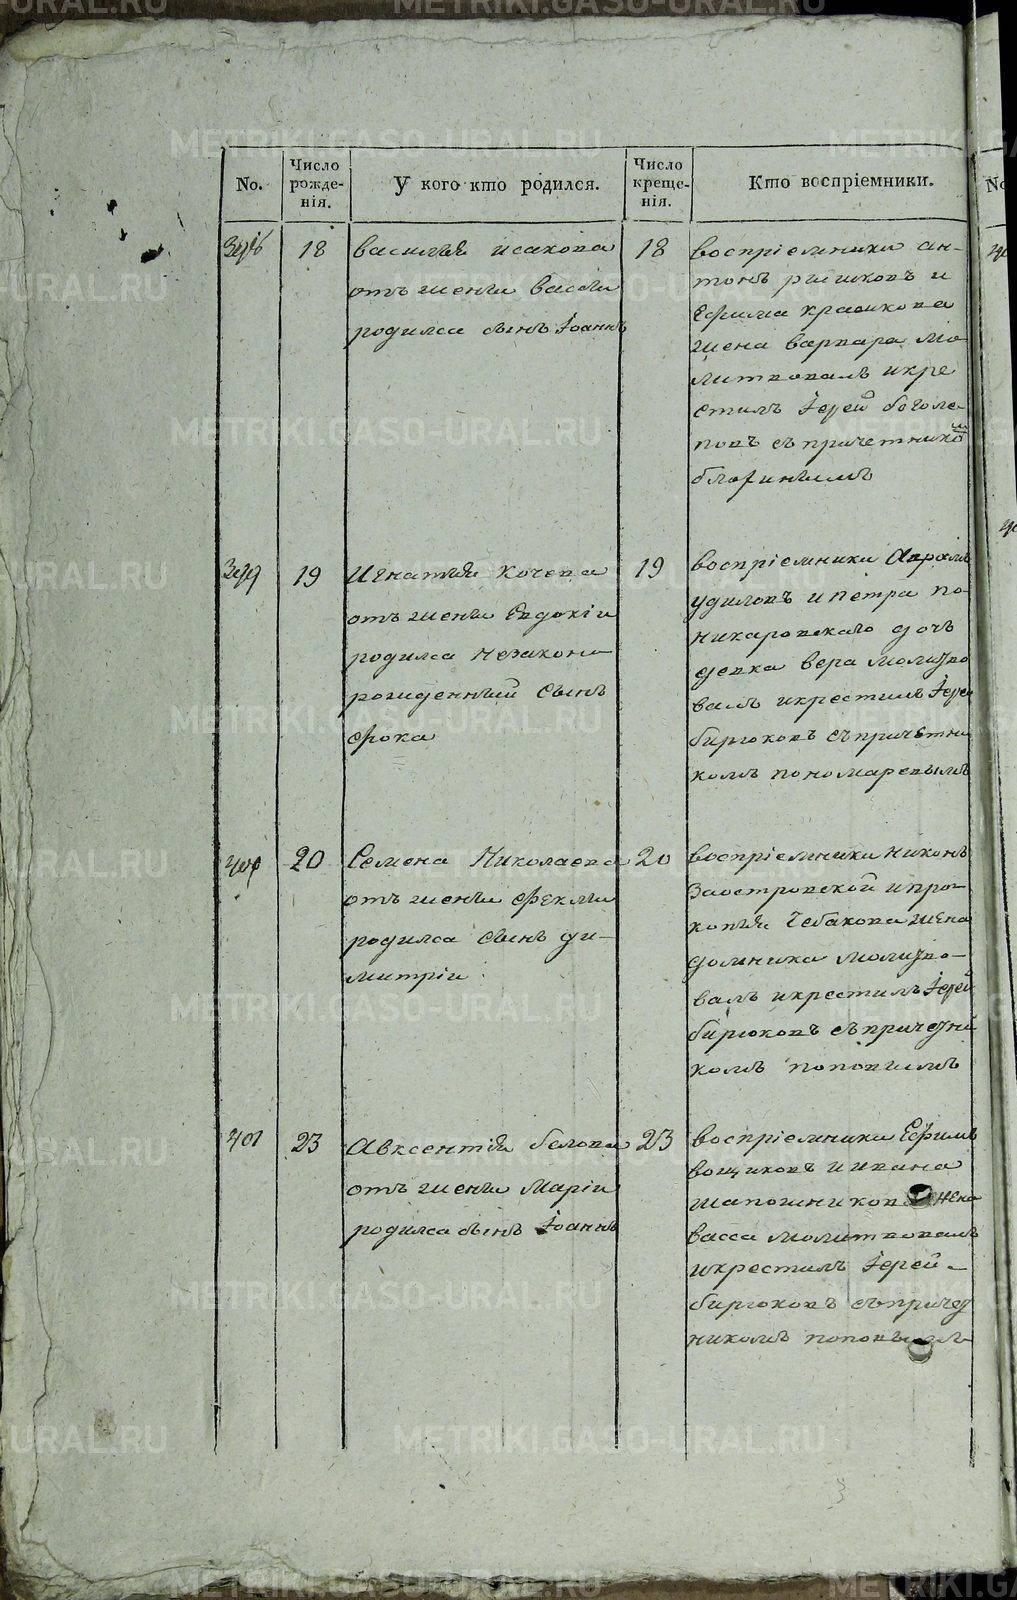 No.
Число рожде-нія.
У кого кто родился.
Число креще-нія.
Кто воспріемники.
18
василья исакова
отъ жены васы
родился сынъ Іоаннъ
18
воспріемники ан-
тонъ и
Ефима
жена варвара мо-
литвовалъ икре
стилъ Іерей боголе-
повъ съ причетнико
м
19
Игнатья Кочева
отъ жены Евдокіи
родился незакон
рожденный сынъ
фока
19
воспріемники Аврамъ
удиловъ и петра по-
никаровскаго дочь
девка вера молитво
валъ икрестилъ Іерей
бирюковъ съ причетни
комъ пономаревымъ
20
Семена Николаева
отъ жены феклы
родился сынъ ди-
митріи
20
воспріемники Никонъ
Заостровской ипро-
копья Чебакова жена
домника молитво-
валъ икрестилъ Іерей
бирюковъ съ причетни
комъ поповымъ
401
23
Авксентія белова
отъ жены Маріи
родился сынъ Іоаннъ
23
воспріемники Ефимъ
вощиковъ и ивана
шапошников жена
васса молитвовалъ
икрестилъ Іерей
бирюковъ съ причет
никомъ поповымъ
METRIKI.GASO-URAL.RU